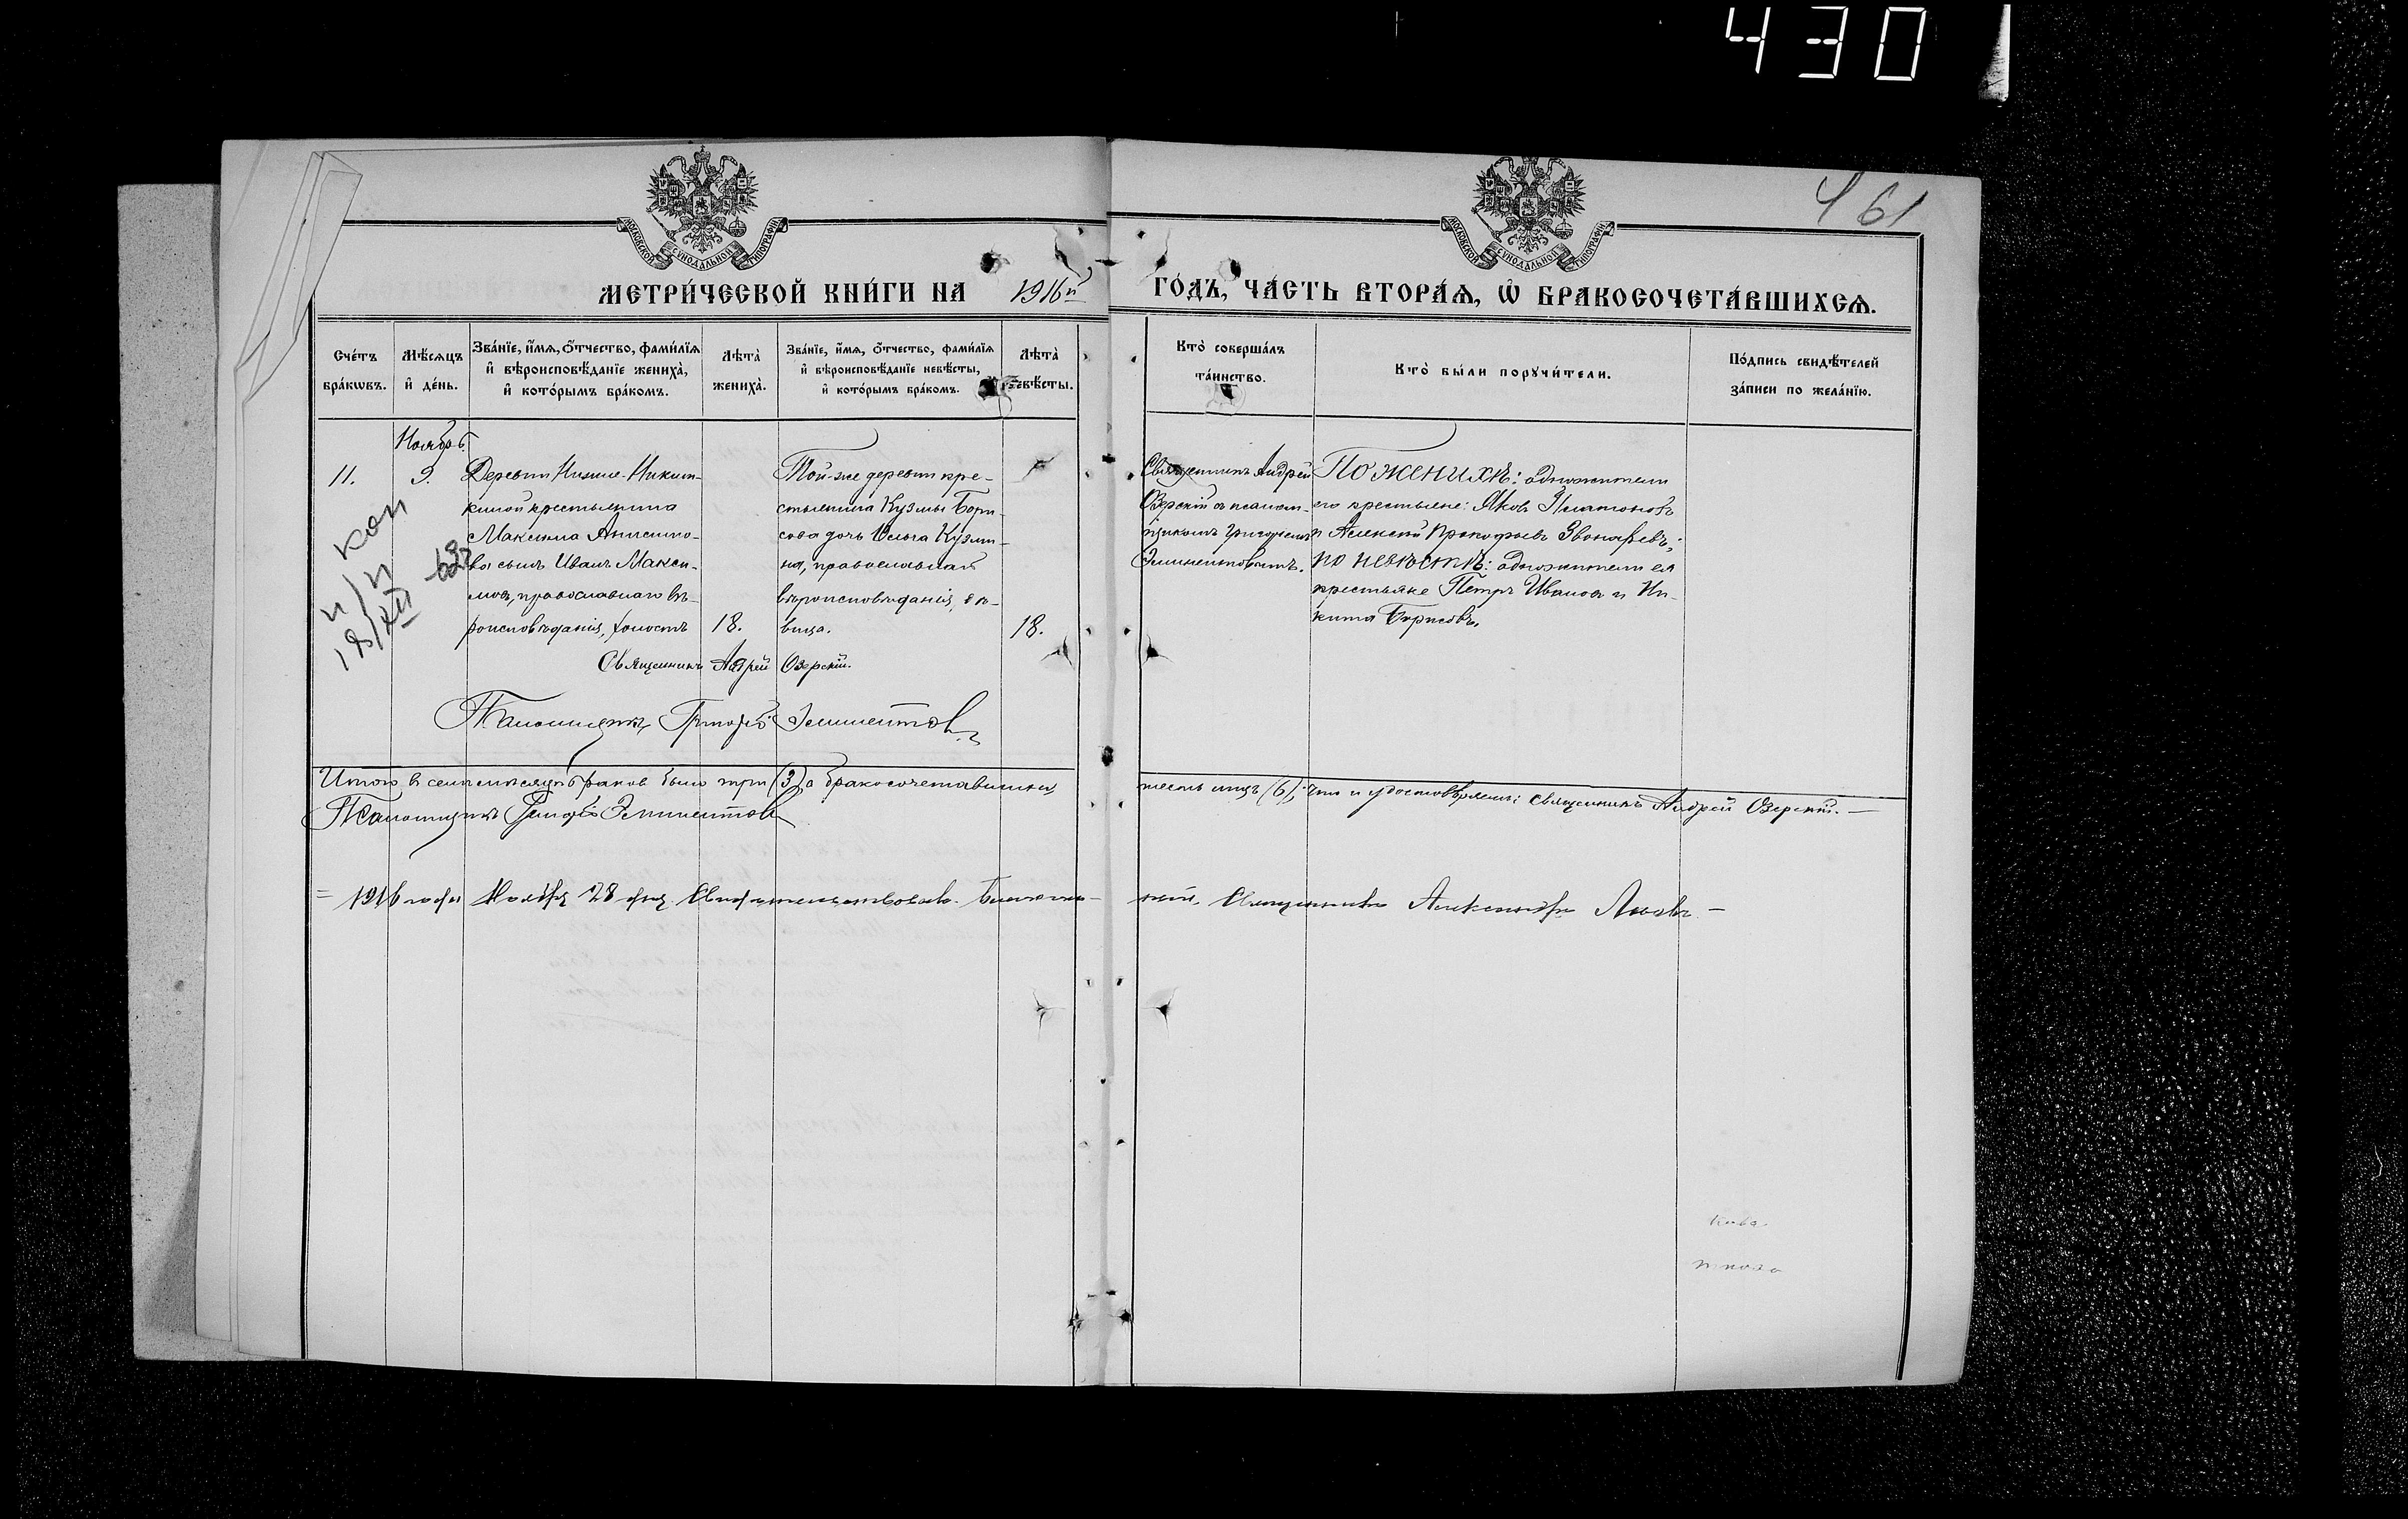 430
461
МОСКОВСКОЙ СѴНОДАЛЬНОЙ ТИПОГРАФІИ
МОСКОВСКОЙ СѴНОДАЛЬНОЙ ТИПОГРАФІИ
МЕТРИ́ЧЕСКОЙ КНИ́ГИ НА 1916й ГО́ДЪ, ЧА́СТЬ ВТОРА́Ѧ, Ѽ БРАКОСОЧЕТА́ВШИХСѦ.
Сче́тъ бра́кѡвъ.
Мѣ́сѧцъ и҆ де́нь.
Зва́нїе, и҆́мѧ, ѻ҆́тчество, фами́лїѧ
и҆ вѣроисповѣ́данїе жениха̀,
и҆ кото́рымъ бра́комъ.
Лѣта̀ жениха̀.
Зва́нїе, и҆́мѧ, ѻ҆́тчество, фами́лїѧ
и҆ вѣроисповѣ́данїе невѣ́сты,
и҆ кото́рымъ бра́комъ.
Лѣта̀ невѣ́сты.
Кто̀ соверша́лъ
та́инство.
Кто̀ бы́ли порꙋчи́тели.
По́дпись свидѣ́телей
за́писи по жела́нїю.
Ноябрь.
11.
9.
Деревни Нижне-Никит-
киной крестьянина
Максима Анисимо-
ва сынъ Иванъ Макси-
мовъ, православнаго вѣ-
роисповѣданія, холостъ
18.
Той-же деревни кре-
стьянина Кузмы Бори-
сова дочь Ольга Кузми-
на, православнаго
вѣроисповѣданія, дѣ-
вица.
18.
Священникъ Андрей
Озерскій съ псалом-
щикомъ Григоріемъ
Эминентовымъ.
По женихѣ: одножители
его крестьяне: Яковъ Платоновъ
и Алексѣй Прокофьевъ Звонаревъ;
по невѣстѣ: одножители ея
крестьяне Петръ Ивановъ и Ни-
кита Борисовъ.
коп
18/XII
Священникъ Андрей Озерскій.
Псаломщикъ Григорій Эминентовъ
Итого в семъ мѣсяцѣ браков было три (3), а бракосочетавшихся шесть лицъ (6), что и удостовѣряемъ: священникъ Андрей Озерскій. —
Псаломщикъ Григорій Эминентовъ
= 1916 года Ноября 28 дня Свидѣтельствовалъ Благочин-
ный, Священникъ Александръ